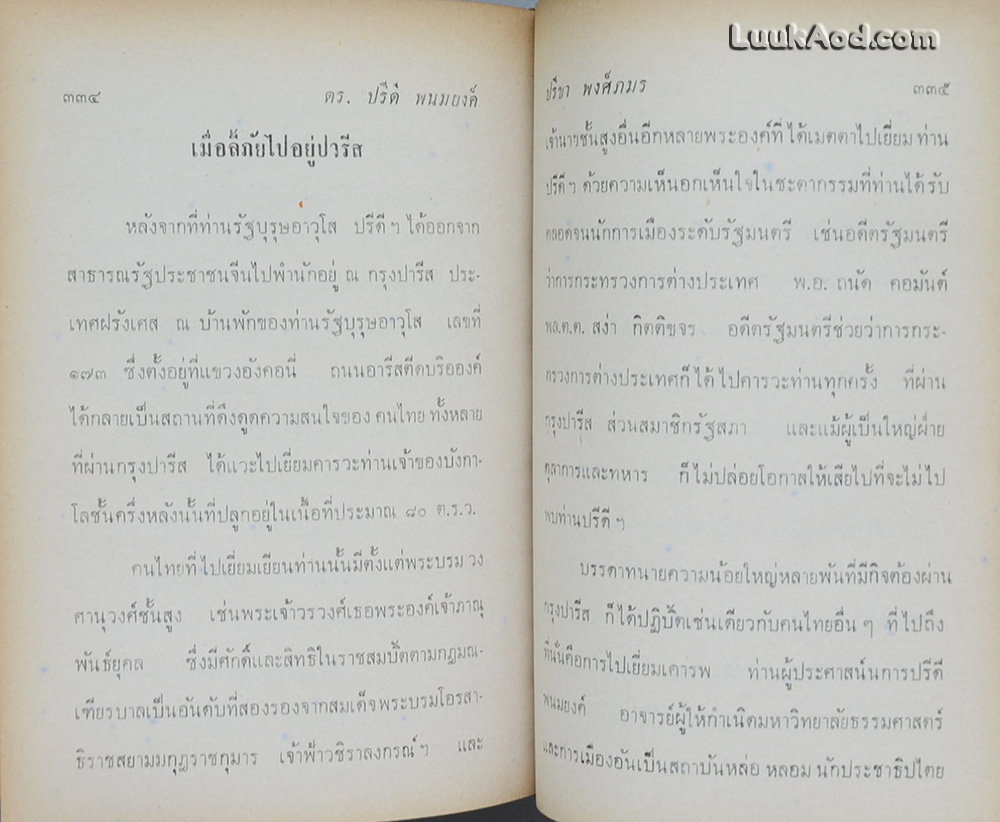 LuukAod.com
๓๓๔
ดร. ปรีดี พนมยงค์
เมื่อลี้ภัยไปอยู่ปารีส
หลังจากที่ท่านรัฐบุรุษอาวุโส ปรีดีฯ ได้ออกจาก
สาธารณรัฐประชาชนจีนไปพำนักอยู่ ณ กรุงปารีส ประ-
เทศฝรั่งเศส ณ บ้านพักของท่านรัฐบุรุษอาวุโส เลขที่
๑๗๓ ซึ่งตั้งอยู่ที่แขวงอังคอนี ถนนอารีสตีดบริอองค์
ได้กลายเป็นสถานที่ดึงดูดความสนใจของ คนไทย ทั้งหลาย
ที่ผ่านกรุงปารีส ได้แวะไปเยี่ยมคารวะท่านเจ้าของบังกา-
โลชั้นครึ่งหลังนั้นที่ปลูกอยู่ในเนื้อที่ประมาณ ๘๐ ต.ร.ว.
คนไทยที่ไปเยี่ยมเยียนท่านนั้นมีตั้งแต่พระบรม วง
ศานุวงศ์ชั้นสูง เช่นพระเจ้าวรวงศ์เธอพระองค์เจ้าภาณุ
พันธ์ยุคล ซึ่งมีศักดิ์และสิทธิในราชสมบัติตามกฎมณ-
เฑียรบาลเป็นอันดับที่สองรองจากสมเด็จพระบรมโอรสา-
ธิราชสยามมกุฎราชกุมาร เจ้าฟ้าวชิราลงกรณ์ฯ และ
ปรีชา พงศ์ภมร
๓๓๕
เจ้านายชั้นสูงอื่นอีกหลายพระองค์ที่ ได้เมตตาไปเยี่ยม ท่าน
ปรีดีฯ ด้วยความเห็นอกเห็นใจในชะตากรรมที่ท่านได้รับ
ตลอดจนนักการเมืองระดับรัฐมนตรี เช่นอดีตรัฐมนตรี
ว่าการกระทรวงการต่างประเทศ พ.อ. ถนัด คอมันต์
พล.ต.ต. สง่า กิตติขจร อดีตรัฐมนตรีช่วยว่าการกระ-
ทรวงการต่างประเทศก็ได้ไปคารวะท่านทุกครั้ง ที่ผ่าน
กรุงปารีส ส่วนสมาชิกรัฐสภา และแม้ผู้เป็นใหญ่ฝ่าย
ตุลาการและทหาร ก็ไม่ปล่อยโอกาสให้เสียไปที่จะไม่ไป
พบท่านปรีดีฯ
บรรดาทนายความน้อยใหญ่หลายพันที่มีกิจต้องผ่าน
กรุงปารีส ก็ได้ปฏิบัติเช่นเดียวกับคนไทยอื่น ๆ ที่ไปถึง
ที่นั่นคือการไปเยี่ยมเคารพ ท่านผู้ประศาสน์นการปรีดี
พนมยงค์ อาจารย์ผู้ให้กำเนิดมหาวิทยาลัยธรรมศาสตร์
และการเมืองอันเป็นสถาบันหล่อ หลอม นักประชาธิปไตย